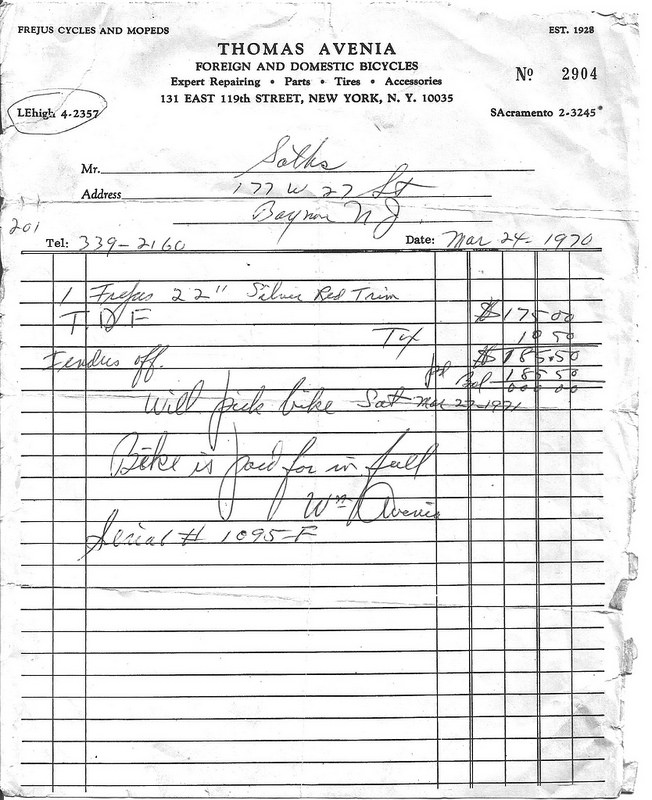 FREJUS CYCLES AND MOPEDS
EST. 1928
THOMAS AVENIA
FOREIGN AND DOMESTIC BICYCLES
Expert Repairing • Parts • Tires • Accessories
No 2904
131 EAST 119th STREET, NEW YORK, N. Y. 10035
LEhigh 4-2357
SAcramento 2-3245
Mr.
Address 177 W 27 St
N J.
201
Tel: 339-2160 Date: Mar 24-1970
1 Frejus 22" Silver Red Trim $175 00
T.D F
Tax 10 50
Fenders off. $185.50
pd 185 50
Bal 000 00
Will pick bike Sat Mar 27-1971
Bike is paid for in full
Wm Avenia
Serial # 1095-F